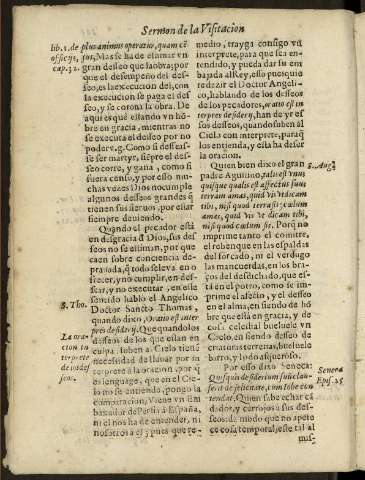 Sermon de la Visitacion
lib. 1. de
officijs,
cap. 32.
plus animus operatur, quam cẽ
sus, Mas se ha de estimar vn
gran desseo que la obra; por
que el desempeño del des-
seo, es la execucion del, con
la execucion se paga el des-
seo, y se corona la obra. De
aqui es que estando vn hõ-
bre en gracia, mientras no
se executa el desseo por no
poder v.g. Como si desseas-
se ser martyr, siẽpre el des-
seo corre, y gana, como si
fuera censo, y por esso mu-
chas vezes Dios no cumple
algunos desseos grandes q̃
tienen sus siervos, por estar
siempre deviendo.
Quando el pecador está
en desgracia d̃ Dios, sus des-
seos no se estiman, por que
caen sobre conciencia de-
prauada, q̃ todo se leva en o
frecer, y no cumplir, en des-
sear, y no executar, en este
sentido hablo el Angelico
Doctor Sancto Thomas,
quando dixo, Oratio est inter
pres desiderij. Que quando los
desseos de los que estan en
culpa suben a Cielo tienẽ
necessidad de llevar por in
terprete a la oracion, por q̃
es lenguage, que en el Cie-
lo no se entiende, pongo la
comparacion, Viene vn Em
baxador de Persia a España,
ni el nos ha de entender, ni
nosotros a el, pues que re-
S. Tho.
La ora
cion in
terprete
de los des
seos.
medio, trayga consigo vn
interprete, para que sea en-
tendida, y pueda dar su em
baxada al Rey, esso pues quie
re dezir el Doctor Angeli-
co, hablando de los desseos
de los pecadores, oratio est in
terpres desiderij, han de yr es
sos desseos, quando suben al
Cielo con interprete, paraq̃
los entienda, y esta ha de ser
la oracion.
Quien bien dixo el gran
padre Agustino, talis est vnus
quisque qualis est affectus suus
terram amas, quid vis vt dicam
tibi, nisi quod terra sis; cælum
amas, quid vis vt dicam tibi,
nisi quod cælum sis. Porq̃ no
imprime tanto el comitre,
el rebenque en las espaldas
del forçado, ni el verdugo
las mancuerdas, en los bra-
ços del desdichado, que es-
tá en el potro, como se im-
prime el afecto, y el desseo
en el alma, en siendo de hõ
bre que está en gracia, y de
cosa celestial buelvele vn
Cielo, en siendo desseo de
criaturas terrenas, buelvele
barro, y lodo asqueroso.
Por esso dixo Seneca:
Quisquis desiderium suũ clau-
serit de felicitate, cum Iobe con
tendat. Quien sabe echar cã
dados, y cerrojos a sus des-
seos, de modo que no apete
ce cosa temporal, esse tal al
mis-
S. Aug.
Seneca
Epis. 25